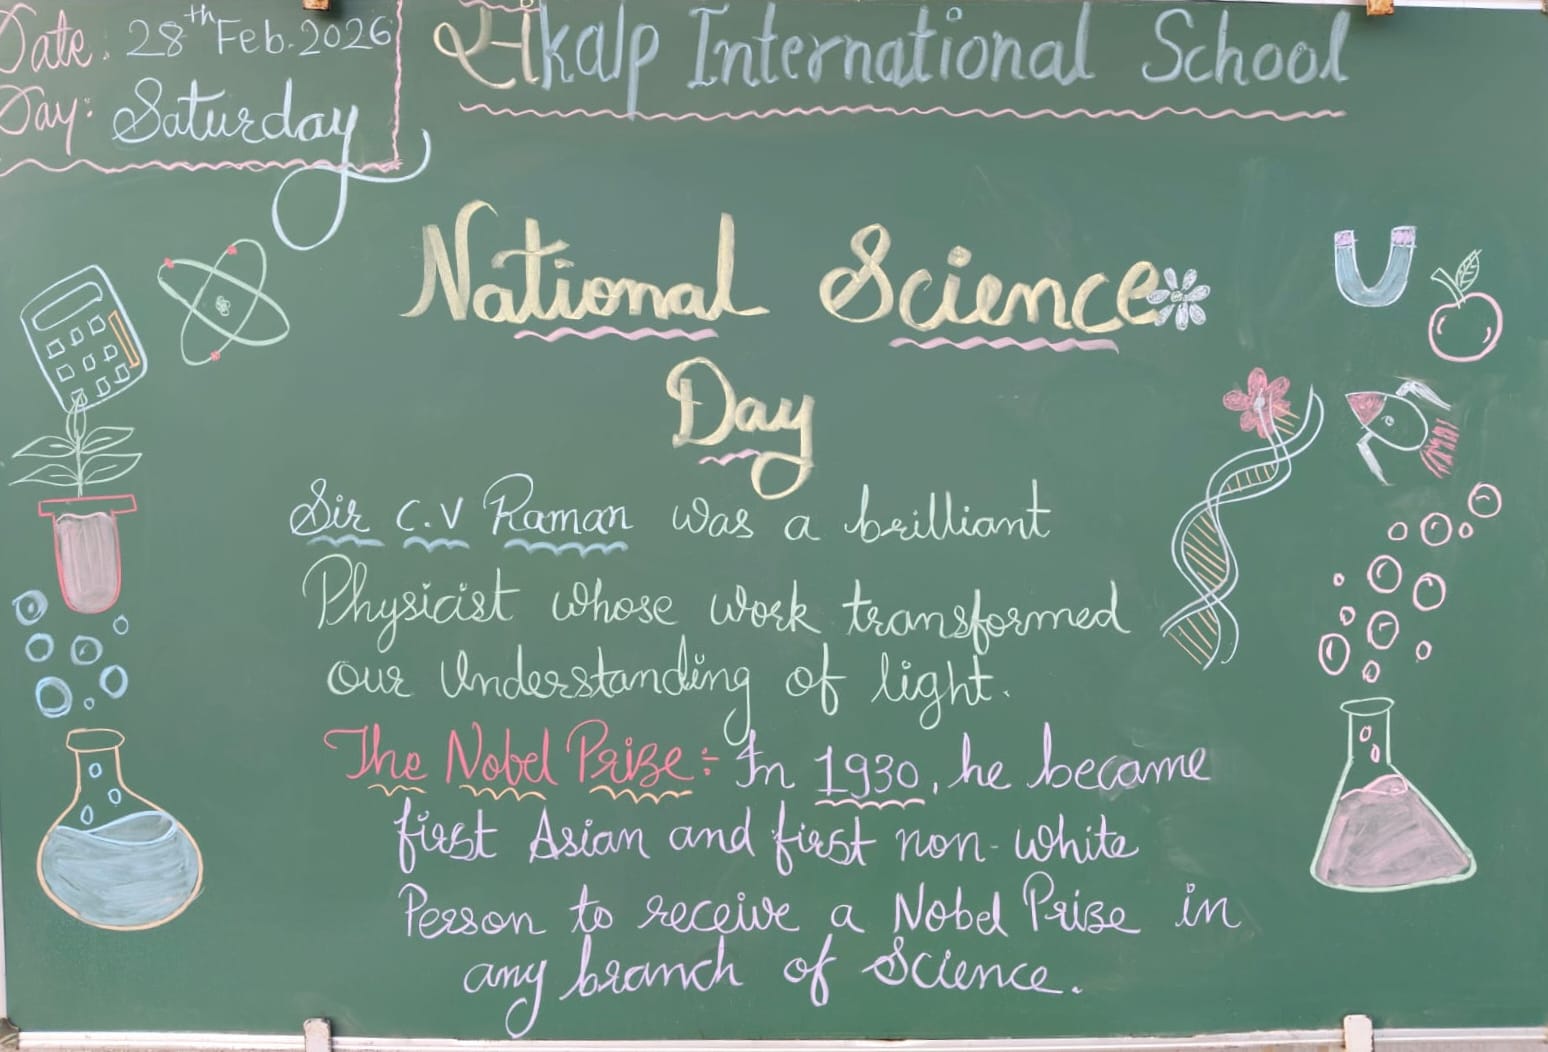 Date: 28th Feb. 2026
Day: Saturday
संkalp International School
National Science
Day
Sir C.V Raman was a brilliant
Physicist whose work transformed
our Understanding of light.
The Nobel Prize:- In 1930, he became
first Asian and first non-white
Person to receive a Nobel Prize in
any branch of Science.